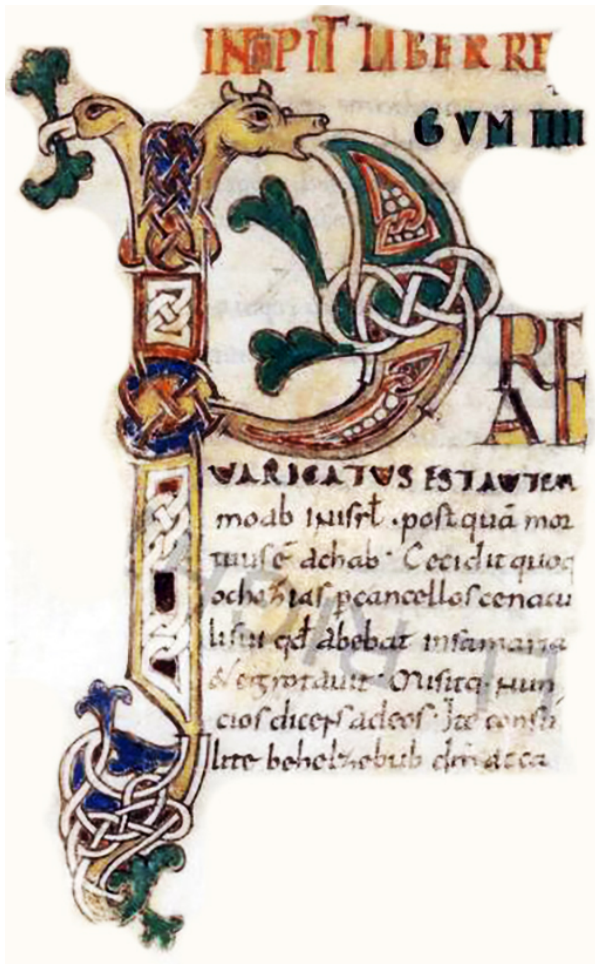 INCIPIT LIBER RE
GVM IIII
PRE
AE
UARICATUS EST AUTEM
moab inisrł · postquā mor
tuus ē achab · Cecidit quoq
ochozias p cancellos cenacu
li sui qđ abebat in samaria
& egrotauit · Misitq · nun
cios dicens ad eos · Ite consu
lite behelzebub